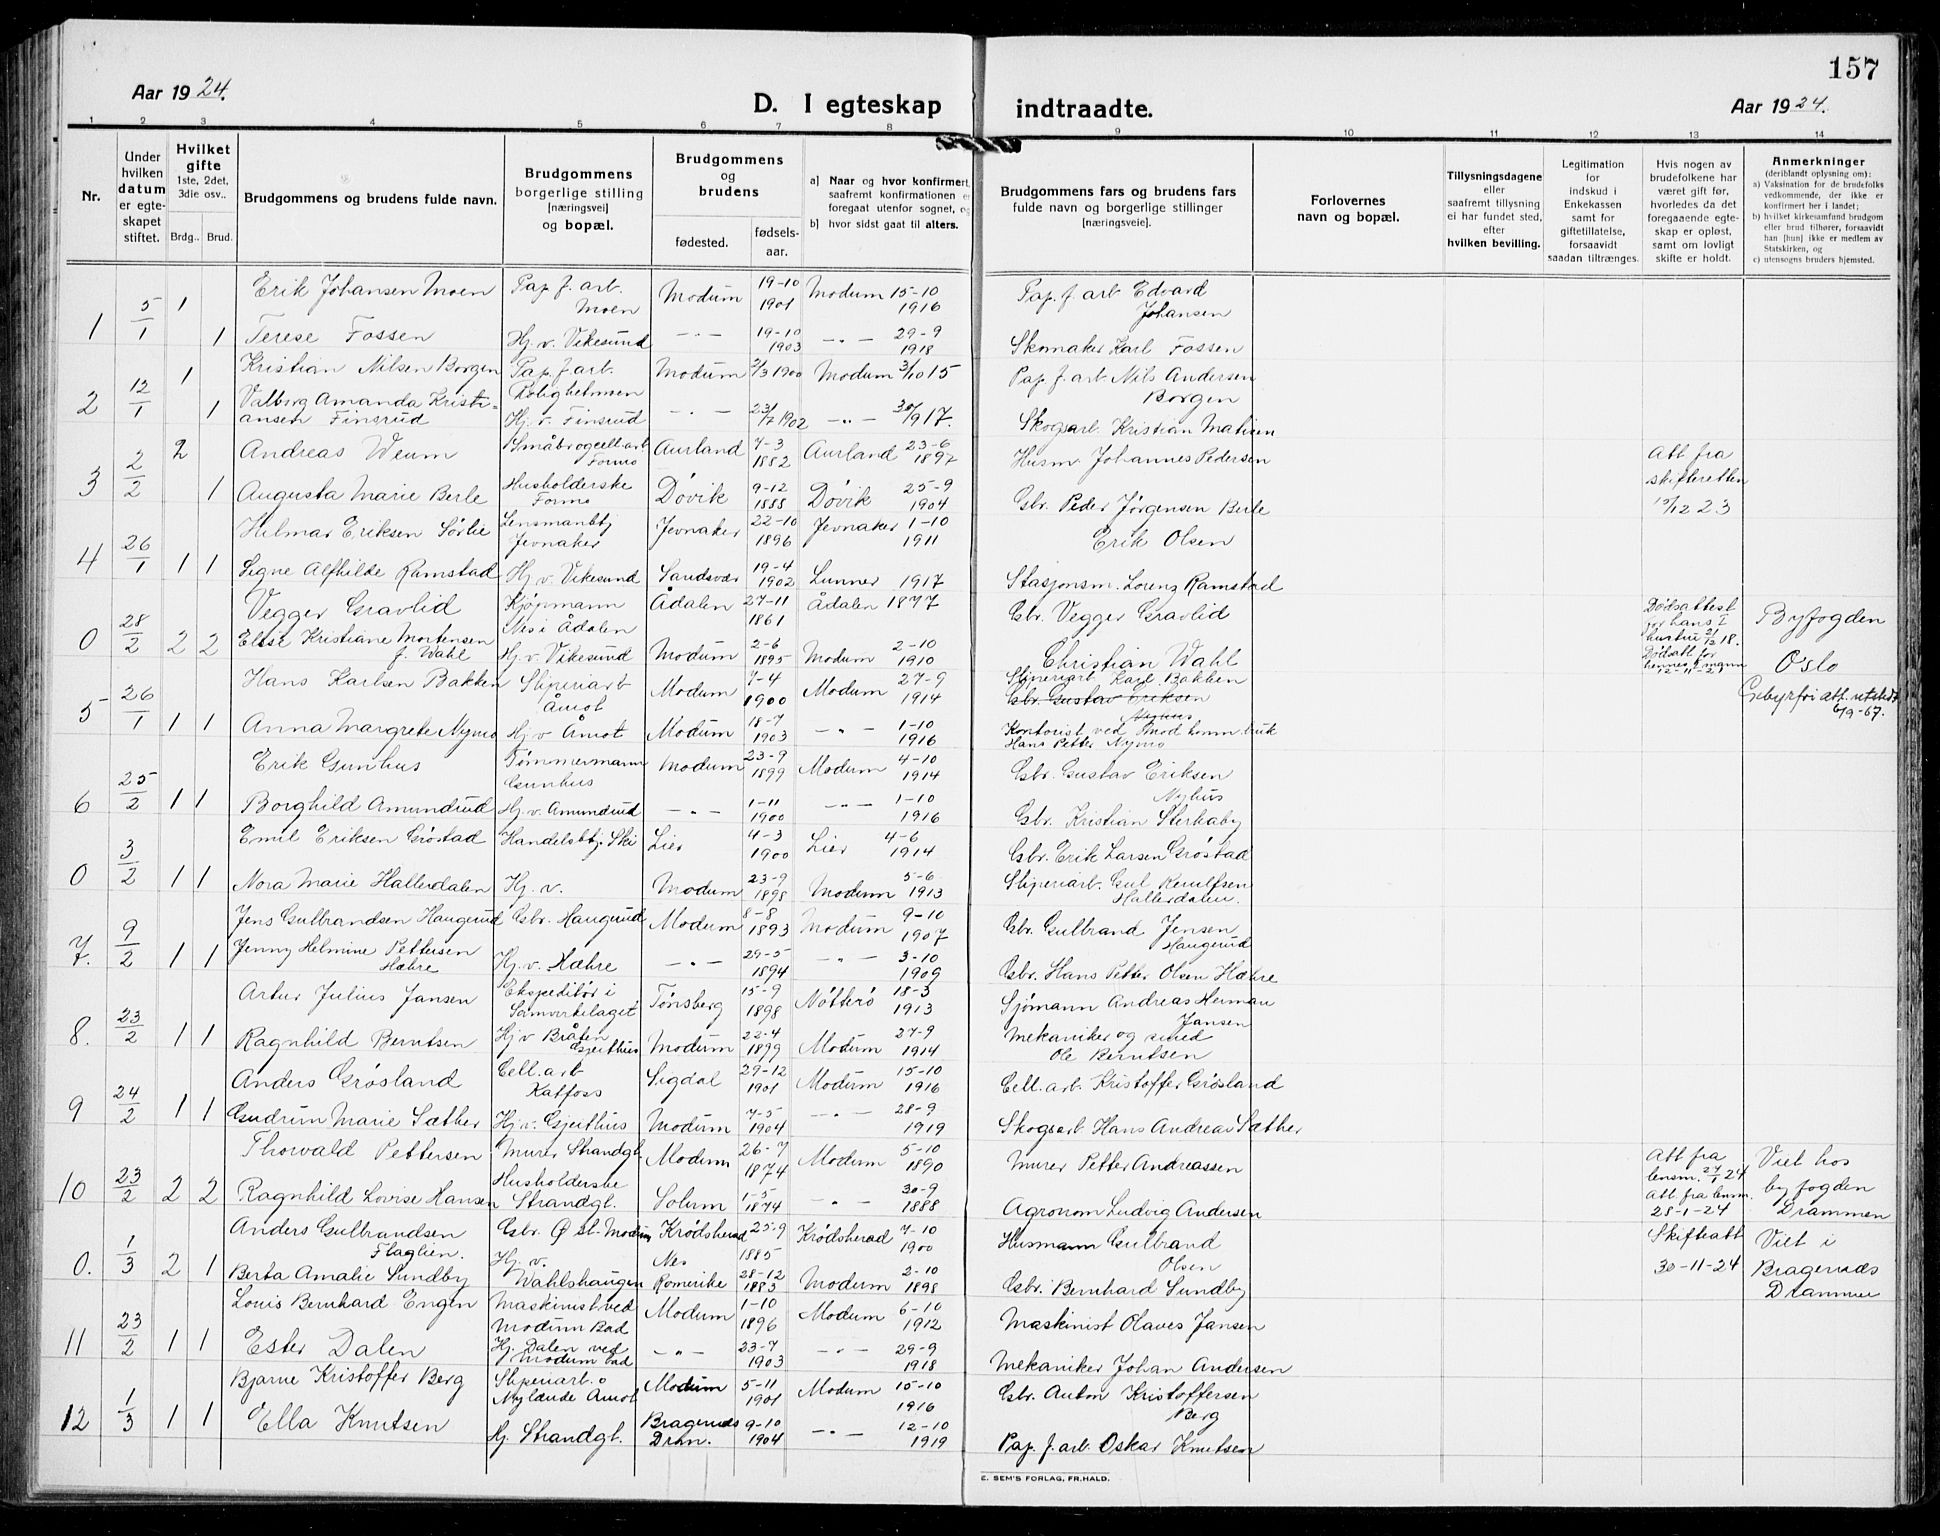 157
Aar 1924.
D. I egteskap
indtraadte.
Aar 1924.
1 2 3 4 5 6 7 8 9 10 11 12 13 14
Nr.
Under
hvilken
datum
er egte-
skapet
stiftet.
Hvilket
gifte
1ste, 2det,
3die osv..
Brdg.. Brud.
Brudgommens og brudens fulde navn.
Brudgommens
borgerlige stilling
[næringsvei]
og bopæl.
Brudgommens
og
brudens
fødested.
fødsels-
aar.
a] Naar og hvor konfirmert,
saafremt konfirmationen e
foregaat utenfor sognet, og
b] hvor sidst gaat til alters.
Brudgommens fars og brudens fars
fulde navn og borgerlige stillinger
[næringsveie].
Forlovernes
navn og bopæl.
Tillysningsdagene
eller
saafremt tillysning
ei har fundet sted,
efter
hvilken bevilling.
Legitimation
for
indskud i
Enkekassen
samt for
giftetillatelse,
forsaavidt
saadan tiltrænges.
Hvis nogen av
brudefolkene har
været gift før,
hvorledes da det
foregaaende egte-
skap er opløst,
samt om lovligt
skifte er holdt.
Anmerkninger
(deriblandt oplysning om):
a) Vaksination for de brudefolks
vedkommende, der ikke er
konfirmert her i landet;
b) hvilket kirkesamfund brudgom
eller brud tilhører, forsaavidt
han [hun] ikke er medlem av
Statskirken, og
c) utensogns bruders hjemsted.
1 5/1 1 Erik Johansen Moen Pap. f. arb. Moen Modum 19-10 1901 Modum 15-10 1916 Pap. f. arb Edvard Johansen
1 Terese Fossen Hj. v. Vikesund -"- 19-10 1903 -"- 29-9 1918 Skomaker Karl Fossen
2 12/1 1 Kristian Nilsen Borgen Pap. f. arb. Rolighetmoen Modum 2/3 1900 Modum 3/10 15 Pap. f. arb. Nils Andersen Borgen
1 Valborg Amanda Kristi-
ansen Finsrud Hj. v. Finsrud -"- 23/7 1902 -"- 30/9 17. Skogsarb. Kristian Matisen
3 2/2 2 Andreas Weum Småbr og cell. arb Formo Aurland 7-3 1882 Aurland 23-6 1897 Husm. Johannes Pedersen Att fra skifteretten 10/12 23
1 Augusta Marie Berle Husholderske Formo Døvik 9-12 1888 Døvik 25-9 1904 Gbr. Peder Jørgensen Berle
4 26/1 1 1 Helmar Eriksen Sørlie Lensmanbtj Jevnaker Jevnaker 22-10 1896 Jevnaker 1-10 1911 Erik Olsen
Signe Alfhilde Ramstad Hj. v. Vikesund Sandsvær 19-4 1902 Lunner 1917 Stasjonsm. Lorenz Ramstad
0 28/2 2 2 Vegger Gravlid Kjøpmann Nes i Ådalen Ådalen 27-11 1861 Ådalen 1877 Gbr. Vegger Gravlid Dødsattest for hans I hustru 21/12 18. Byfogden
Elsie Kristiane Mortensen f. Wahl Hj. v. Vikesund Modum 2-6 1895 Modum 2-10 1910 Christian Wahl Dødsatt for hennes mann 12-11-21 Oslo
5 26/1 1 1 Hans Karlsen Bakken Sliperiarb Åmot Modum 7-4 1900 Modum 27-9 1914 Sliperiarb Karl Bakken
Gbr. Gustav Eriksen Nyhus Gebyrfri att. utstedt 6/9-67.
Anna Margrete Nymo Hj v Åmot Modum 18-7 1903 -"- 1-10 1916 Kontorist ved Mod komm. bruk
Hans Petter Nymo
6 25/2 1 1 Erik Gunhus Tømmermann Gunhus Modum 23-9 1899 Modum 4-10 1914 Gbr. Gustav Eriksen Nyhus
Borghild Amundrud Hj. v. Amundrud -"- 1-11 1900 -"- 1-10 1916 Gbr. Kristian Sterkaby
0 3/2 1 1 Emil Eriksen Grøstad Handelsbtj. Ski Lier 4-3 1900 Lier 4-6 1914 Gbr. Erik Larsen Grøstad
Nora Marie Hallerdalen Hj. v. Modum 23-9 1898 Modum 5-6 1913 Sliperiarb. Gul Hallerdalen
7. 9/2 1 1 Jens Gulbrandsen Haugerud Gbr. Haugerud Modum 8-8 1893 Modum 9-10 1907 Gbr. Gulbrand Jensen Haugerud
Jenny Helmine Pettersen Hæhre Hj. v. Hæhre -"- 29-5 1894 -"- 3-10 1909 Gbr. Hans Petter Olsen Hæhre
8. 23/2 1 1 Artur Julius Jansen Ekspeditør i Samvirkelaget Tønsberg 15-9 1898 Nøtterø 18-3 1913 Sjømann Andreas Herman Jansen
Ragnhild Berntsen Hj v Bråten Gjeithus Modum 22-4 1899 Modum 27-9 1914 Mekaniker og smed Ole Berntsen
9 24/2 1 1 Anders Grøsland Cell. arb Katfoss Sigdal 29-12 1901 Modum 15-10 1916 Cell. arb. Kristoffer Grøsland
Gudrun Marie Sæther Hj. v. Gjeithus Modum 7-5 1904 -"- 28-9 1919 Skogsarb Hans Andreas Sæther
10 23/2 2 2 Thorvald Pettersen Murer Strandgt. Modum 26-7 1874 Modum 5-10 1890 Murer Petter Andreassen Att fra lensm. 27/1 24 Viet hos
Ragnhild Lovise Hansen Husholderske Strandgt. Solum 1-5 1874 -"- 30-9 1888 Agronom Ludvig Andersen Att. fra lensm. 28-1-24 byfogden Drammen
0. 1/3 2 1 Anders Gulbrandsen Flaglien. Gbr. Ø st. Modum Krødsherad 25-9 1885 Krødsherad 7-10 1900 Husmann Gulbrand Olsen Skifteatt 30-11-24 Viet i
Berta Amalie Sundby Hj. v. Wahlshaugen Nes Romerike 28-12 1883 Modum 2-10 1898 Gbr. Bernhard Sundby Bragernes Drammen
11 23/2 1 1 Louis Bernhard Engen Maskinist ved Modum Bad Modum 1-10 1896 Modum 6-10 1912 Maskinist Olaves Jansen
Ester Dalen Hj. Dalen ved Modum bad -"- 23-7 1903 -"- 29-9 1918 Mekaniker Johan Andersen
12 1/3 1 1 Bjarne Kristoffer Berg Sliperiarb. Nylænde Åmot Modum 5-11 1901 Modum 15-10 1916 Gbr. Anton Kristoffersen Berg
Ella Knutsen Hj. Strandgt. Bragernes Dram. 9-10 1904 -"- 12-10 1919 Pap. f. arb. Oskar Knutsen
E. SEM'S FORLAG, FR.HALD.